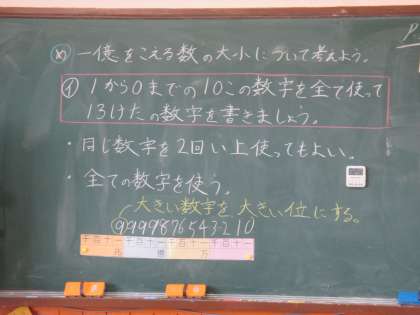 め 一億をこえる数の大小について考えよう。
① 1から0までの10この数字を全て使って
13けたの数字を書きましょう。
・同じ数字を2回い上使ってもよい。
・全ての数字を使う。
大きい数字を大きい位にする。
9999876543210
千百十一千百十一千百十一千百十一
兆 億 万